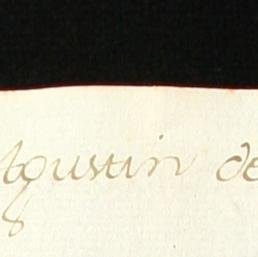 Agustin de